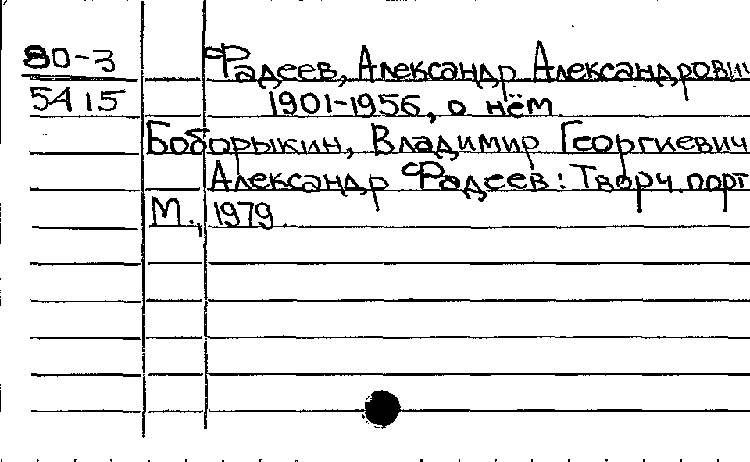 80-3 Фадеев, Александр Александрович
5415 1901-1956, о нём
Боборыкин, Владимир Георгиевич
Александр Фадеев: Творч. порт
М., 1979.